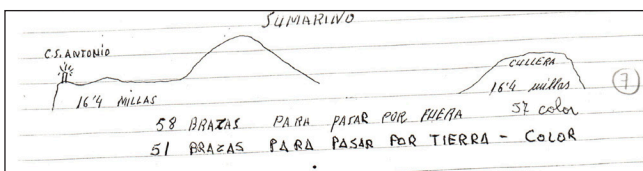 SUMARINO
C.S. ANTONIO
CULLERA
16'4 MILLAS
16'4 millas
7
58 BRAZAS PARA PASAR POR FUERA
57 color
51 BRAZAS PARA PASAR POR TIERRA - COLOR